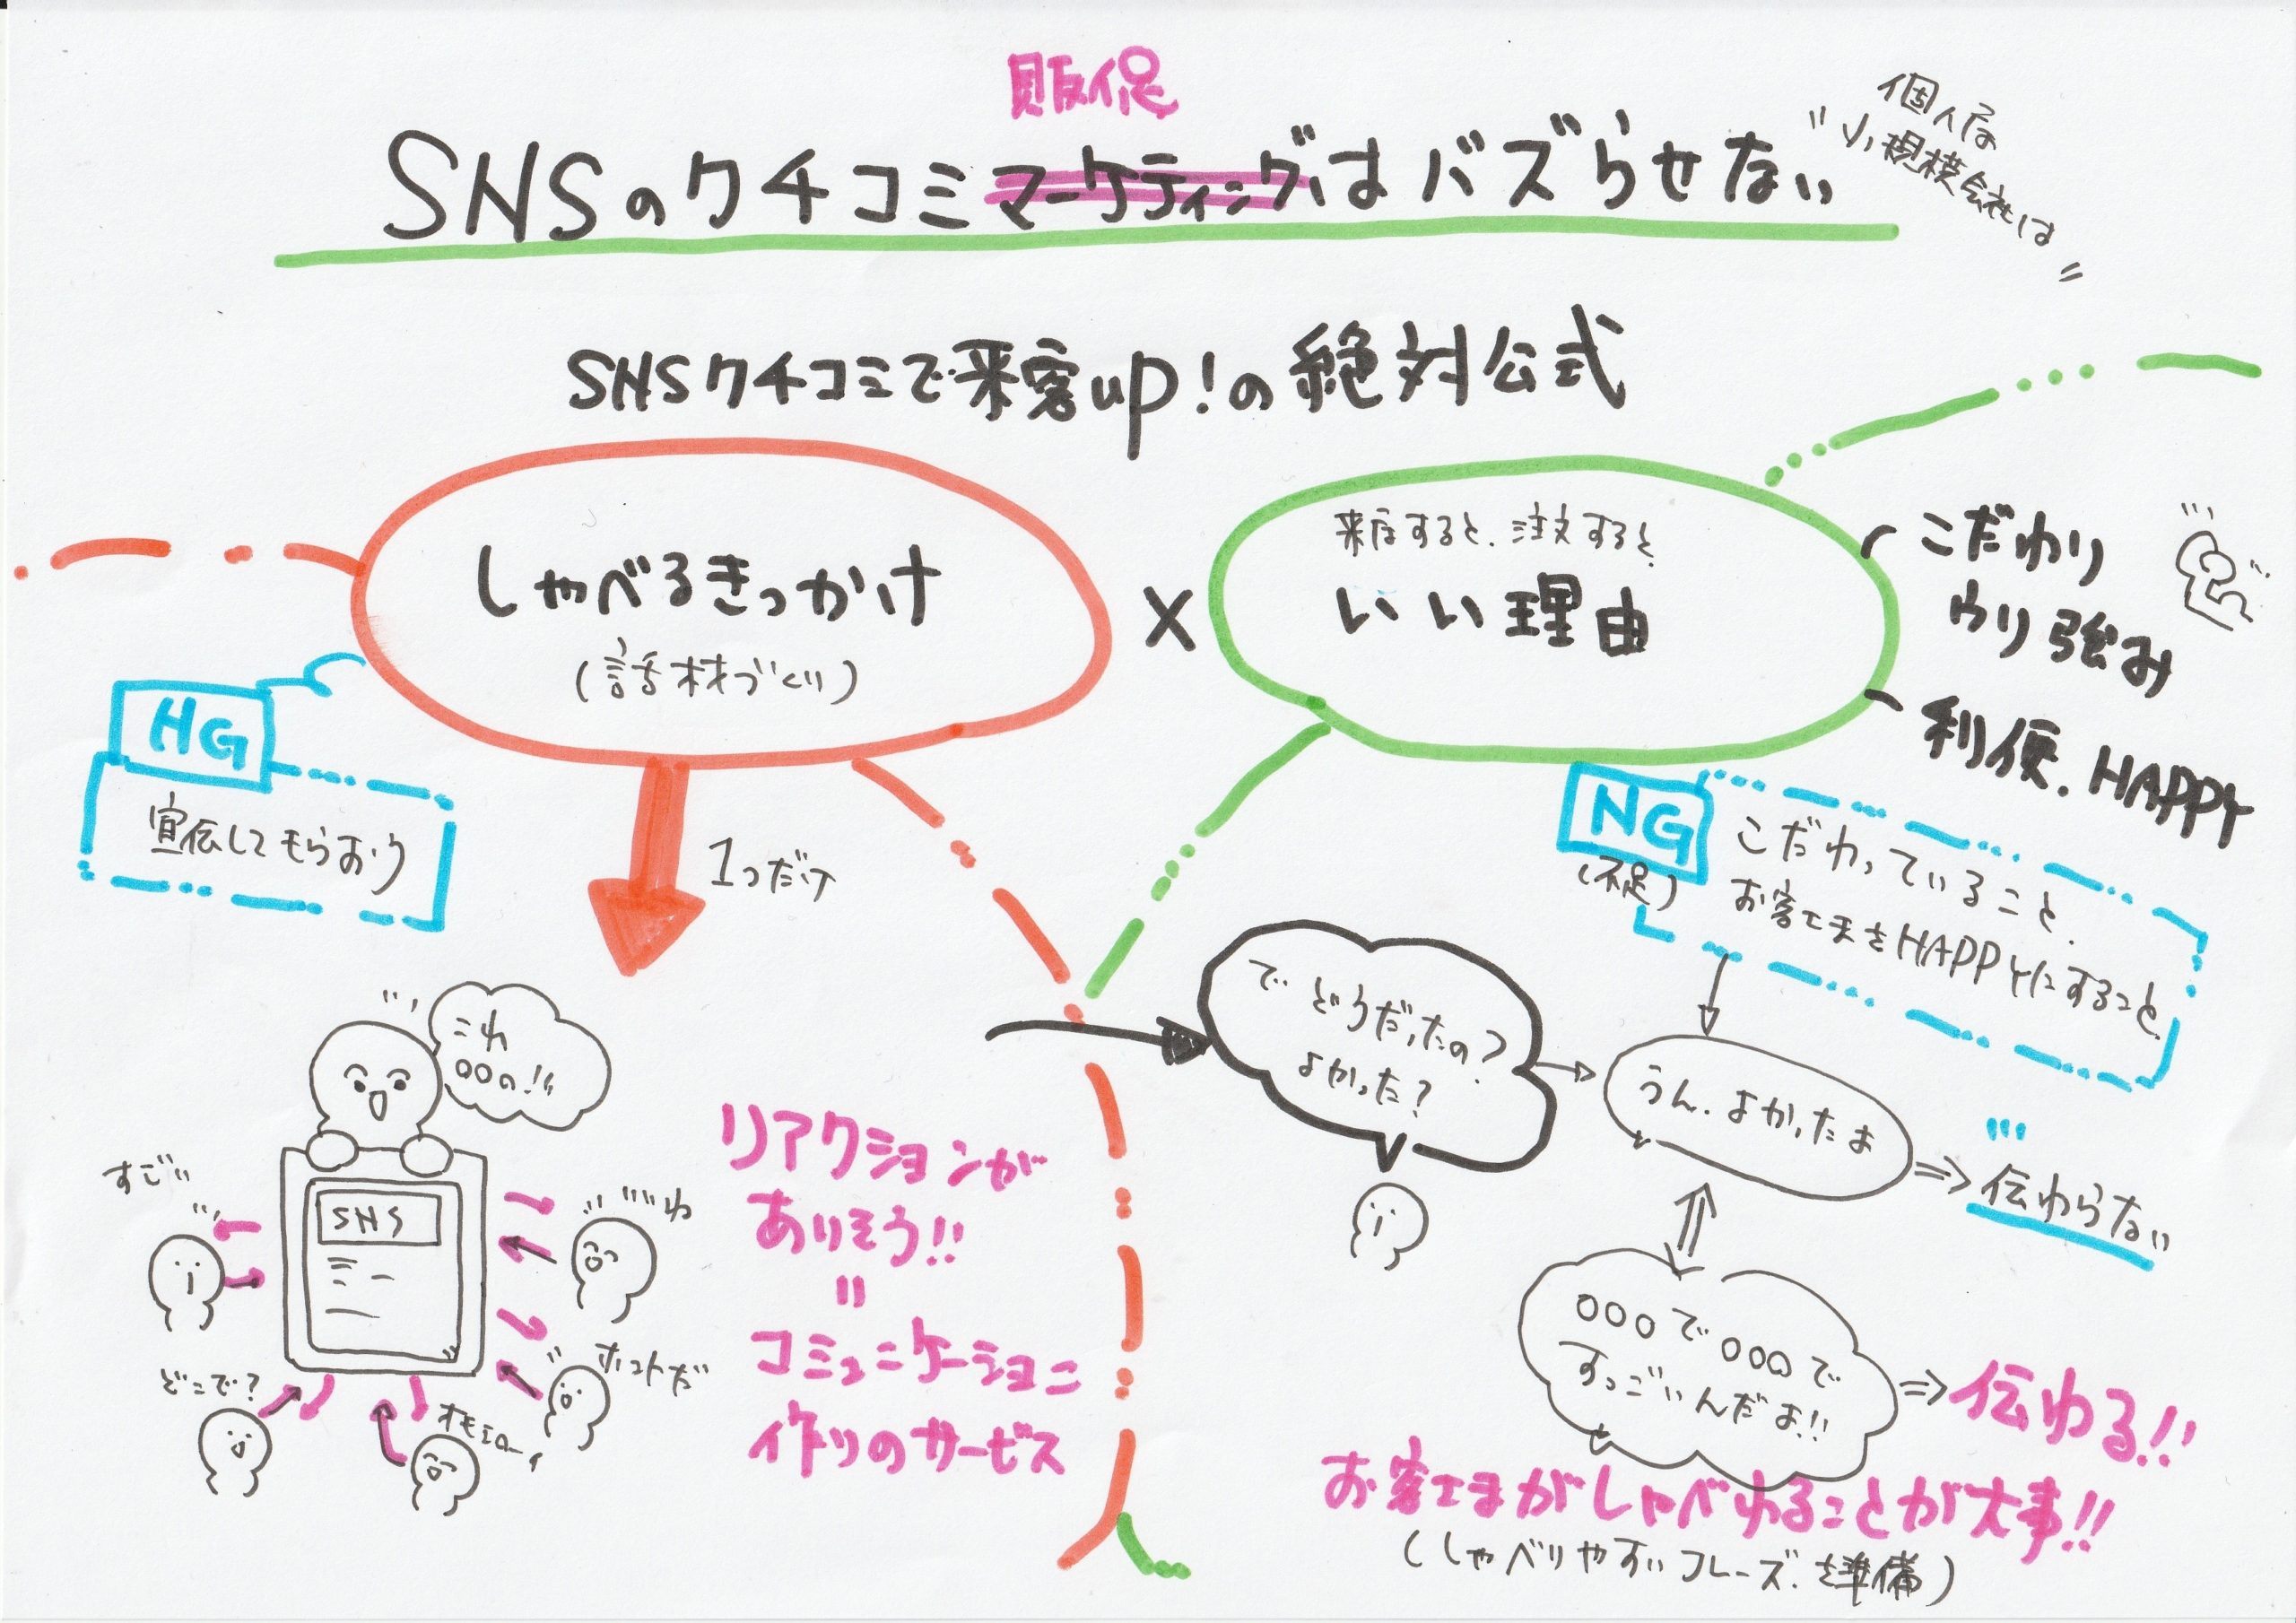 販促
SNSのクチコミマーケティングはバズらせない
個人店
"小規模会社は"
SNSクチコミで来客up!の絶対公式
しゃべるきっかけ
(話材づくり)
×
来店すると、注文すると
いい理由
こだわり
ウリ 強み
利便.HAPPY
HG
宣伝してもらおう
1つだけ
NG
(不足)
こだわっていること、
お客さまをHAPPYにすること
これ
○○の!!
で どうだったの?
よかった?
うん、よかったよ
伝わらない
SNS
すごい
どこで?
オモシローイ
ホントだ
リアクションが
ありそう!!
=
コミュニケーション
作りのサービス
○○○で○○○で
すっごいんだよ!!
伝わる!!
お客さまがしゃべれることが大事!!
(しゃべりやすいフレーズ.を準備)